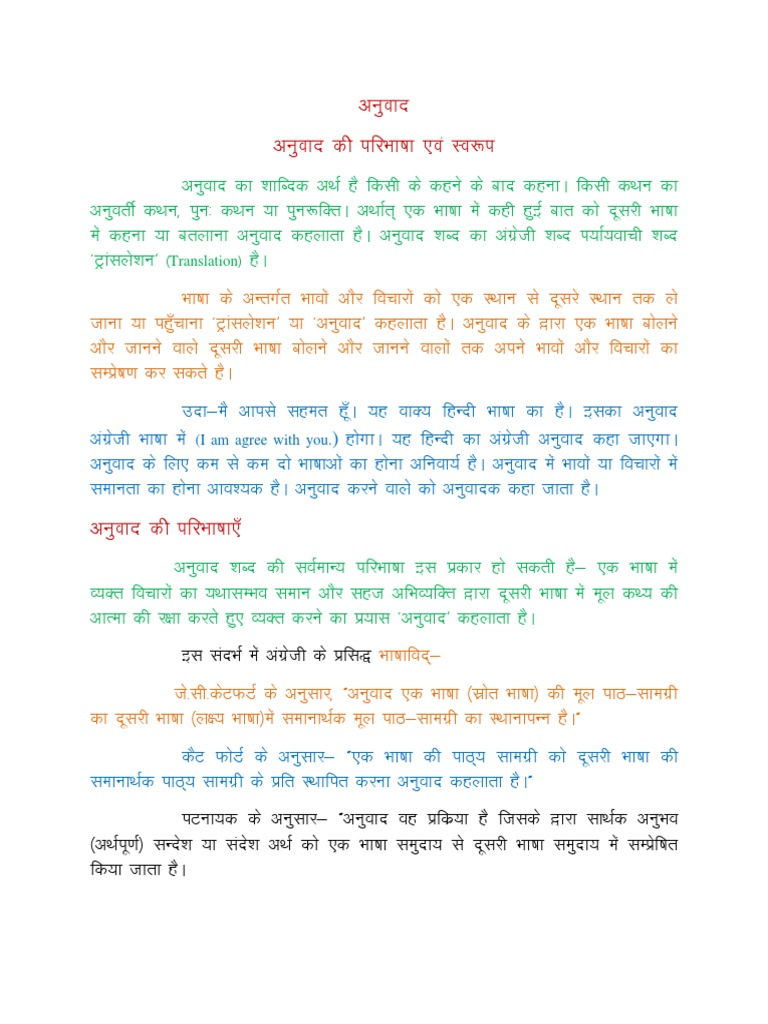 अनुवाद
अनुवाद की परिभाषा एवं स्वरूप
अनुवाद का शाब्दिक अर्थ है किसी के कहने के बाद कहना। किसी कथन का
अनुवर्ती कथन, पुनः कथन या पुनरूक्ति। अर्थात् एक भाषा में कही हुई बात को दूसरी भाषा
में कहना या बतलाना अनुवाद कहलाता है। अनुवाद शब्द का अंग्रेजी शब्द पर्यायवाची शब्द
'ट्रांसलेशन' (Translation) है।
भाषा के अन्तर्गत भावों और विचारों को एक स्थान से दूसरे स्थान तक ले
जाना या पहुँचाना 'ट्रांसलेशन' या 'अनुवाद' कहलाता है। अनुवाद के द्वारा एक भाषा बोलने
और जानने वाले दूसरी भाषा बोलने और जानने वालों तक अपने भावों और विचारों का
सम्प्रेषण कर सकते है।
उदा–मै आपसे सहमत हूँ। यह वाक्य हिन्दी भाषा का है। इसका अनुवाद
अंग्रेजी भाषा में (I am agree with you.) होगा। यह हिन्दी का अंग्रेजी अनुवाद कहा जाएगा।
अनुवाद के लिए कम से कम दो भाषाओं का होना अनिवार्य है। अनुवाद में भावों या विचारों में
समानता का होना आवश्यक है। अनुवाद करने वाले को अनुवादक कहा जाता है।
अनुवाद की परिभाषाएँ
अनुवाद शब्द की सर्वमान्य परिभाषा इस प्रकार हो सकती है– एक भाषा में
व्यक्त विचारों का यथासम्भव समान और सहज अभिव्यक्ति द्वारा दूसरी भाषा में मूल कथ्य की
आत्मा की रक्षा करते हुए व्यक्त करने का प्रयास 'अनुवाद' कहलाता है।
इस संदर्भ में अंग्रेजी के प्रसिद्ध भाषाविद्–
जे.सी.केटफर्ट के अनुसार, "अनुवाद एक भाषा (स्रोत भाषा) की मूल पाठ–सामग्री
का दूसरी भाषा (लक्ष्य भाषा)में समानार्थक मूल पाठ–सामग्री का स्थानापन्न है।"
कैट फोर्ड के अनुसार– "एक भाषा की पाठ्य सामग्री को दूसरी भाषा की
समानार्थक पाठ्य सामग्री के प्रति स्थापित करना अनुवाद कहलाता है।"
पटनायक के अनुसार– "अनुवाद वह प्रक्रिया है जिसके द्वारा सार्थक अनुभव
(अर्थपूर्ण) सन्देश या संदेश अर्थ को एक भाषा समुदाय से दूसरी भाषा समुदाय में सम्प्रेषित
किया जाता है।